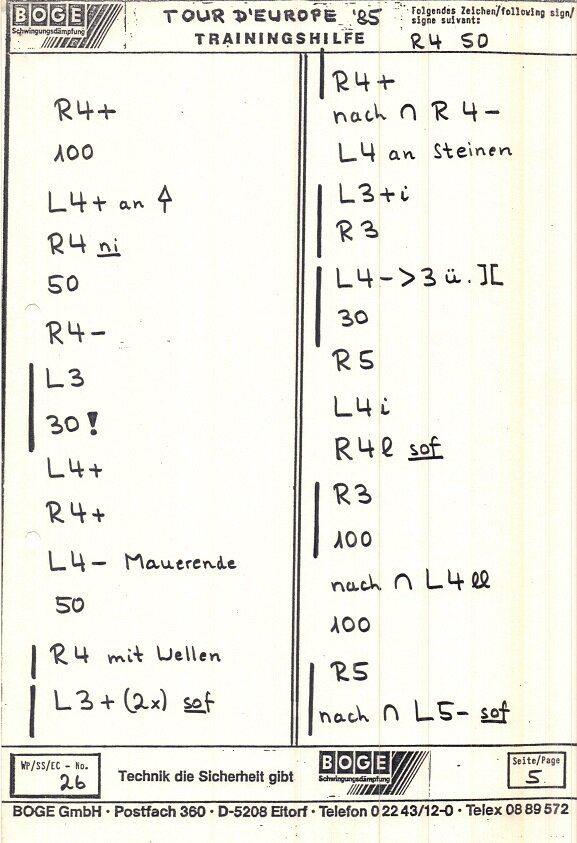 BOGE
Schwingungsdämpfung
TOUR D'EUROPE '85
TRAININGSHILFE
Folgendes Zeichen/following sign/
signe suivant:
R4 50
R4+
100
L4+ an
R4 ni
50
R4-
L3
30!
L4+
R4+
L4- Mauerende
50
R4 mit Wellen
L3+(2x) sof
R4+
nach ∩ R4-
L4 an Steinen
L3+i
R3
L4->3 ü. ][
30
R5
L4i
R4l sof
R3
100
nach ∩ L4ll
100
R5
nach ∩ L5- sof
WP/SS/EC - No.
26
Technik die Sicherheit gibt
BOGE
Schwingungsdämpfung
Seite/Page
5
BOGE GmbH · Postfach 360 · D-5208 Eitorf · Telefon 0 22 43/12-0 · Telex 08 89 572